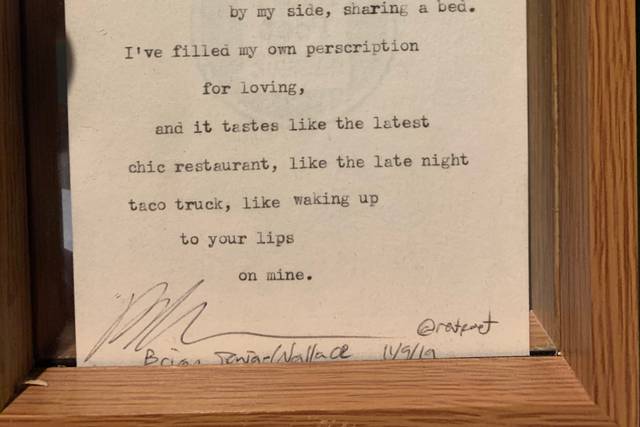 by my side, sharing a bed.
I've filled my own perscription
for loving,
and it tastes like the latest
chic restaurant, like the late night
taco truck, like waking up
to your lips
on mine.
@rentpoet
Brian Sonia-Wallace 11/9/19